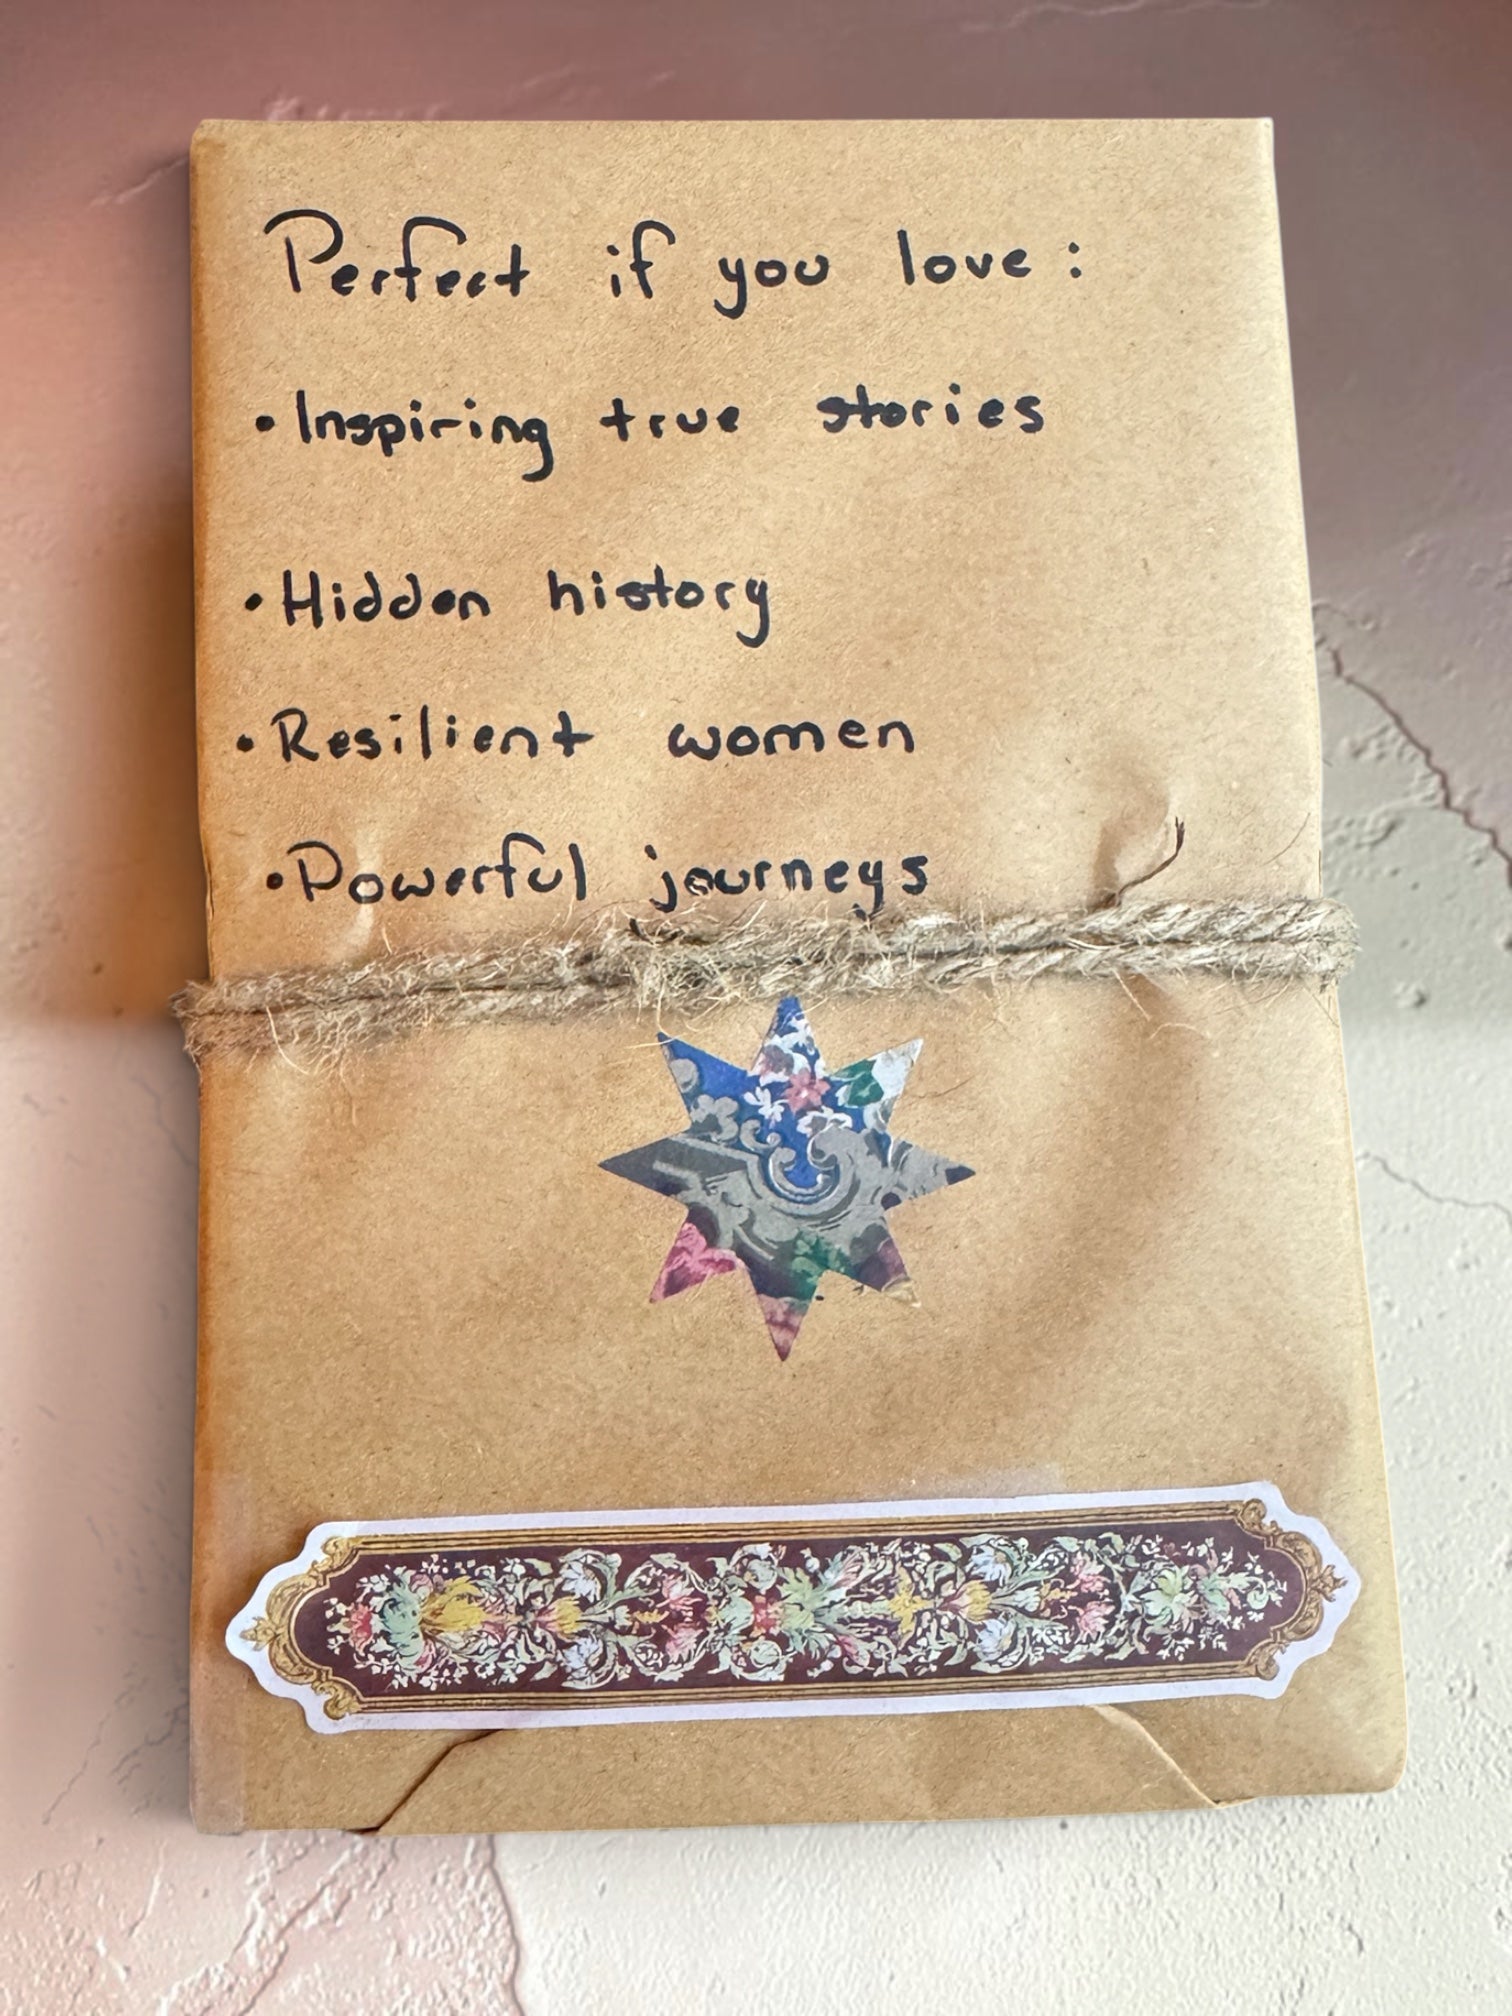 Perfect if you love:
• Inspiring true stories
• Hidden history
• Resilient women
• Powerful journeys